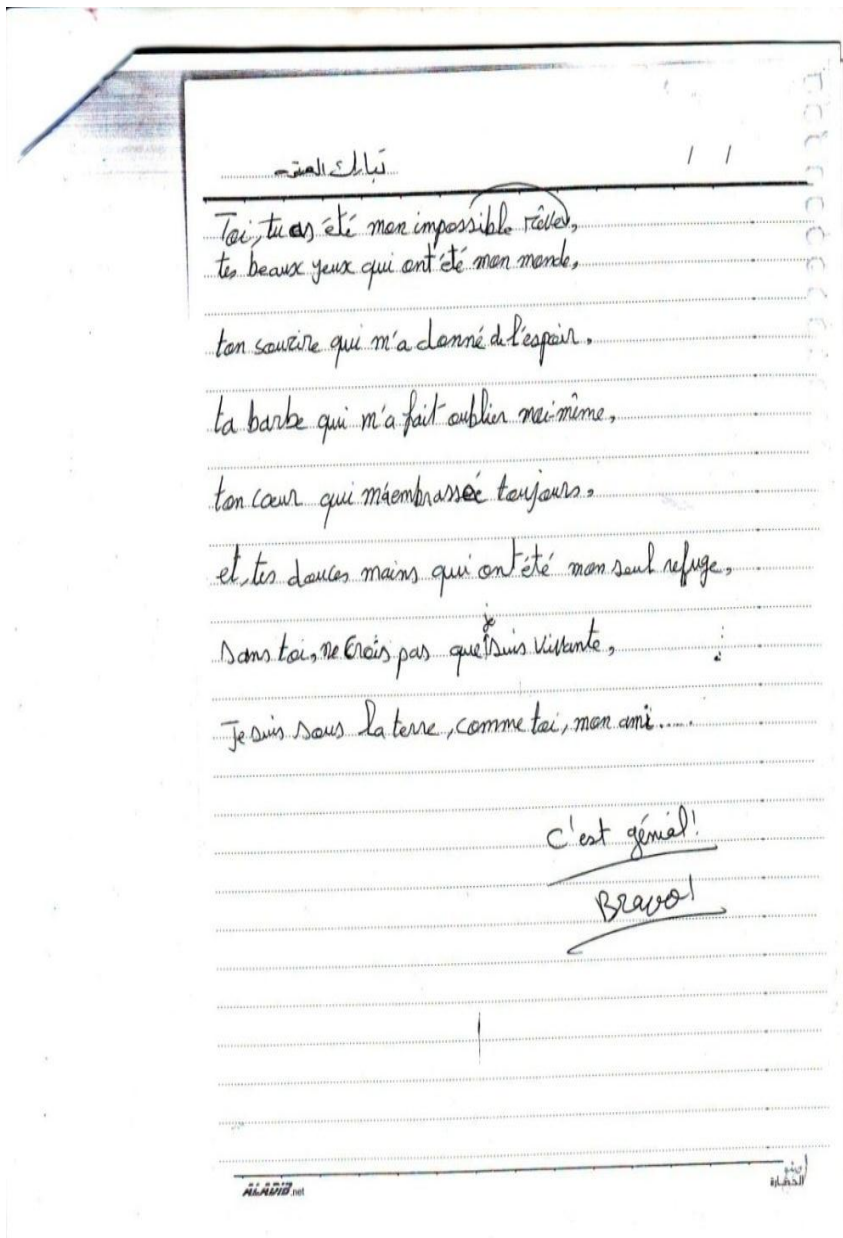 تبارك العتر
/ /
Toi, tu as été mon impossible rêve,
tes beaux yeux qui ont été mon monde,
ton sourire qui m'a donné de l'espoir,
ta barbe qui m'a fait oublier moi-même,
ton cœur qui m'a embrassée toujours,
et, tes douces mains qui ont été mon seul refuge,
sans toi, ne crois pas que je suis vivante,
Je suis sous la terre, comme toi, mon ami.....
C'est génial!
Bravo!
ALADIB.net
الحضارة